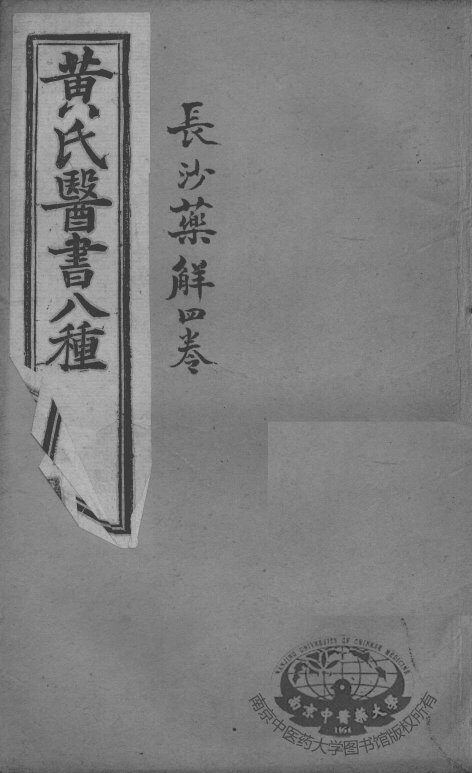 黃氏醫書八種
長沙藥解四卷
NANJING UNIVERSITY OF CHINESE MEDICINE
南京中醫藥大學
1954
南京中医药大学图书馆版权所有